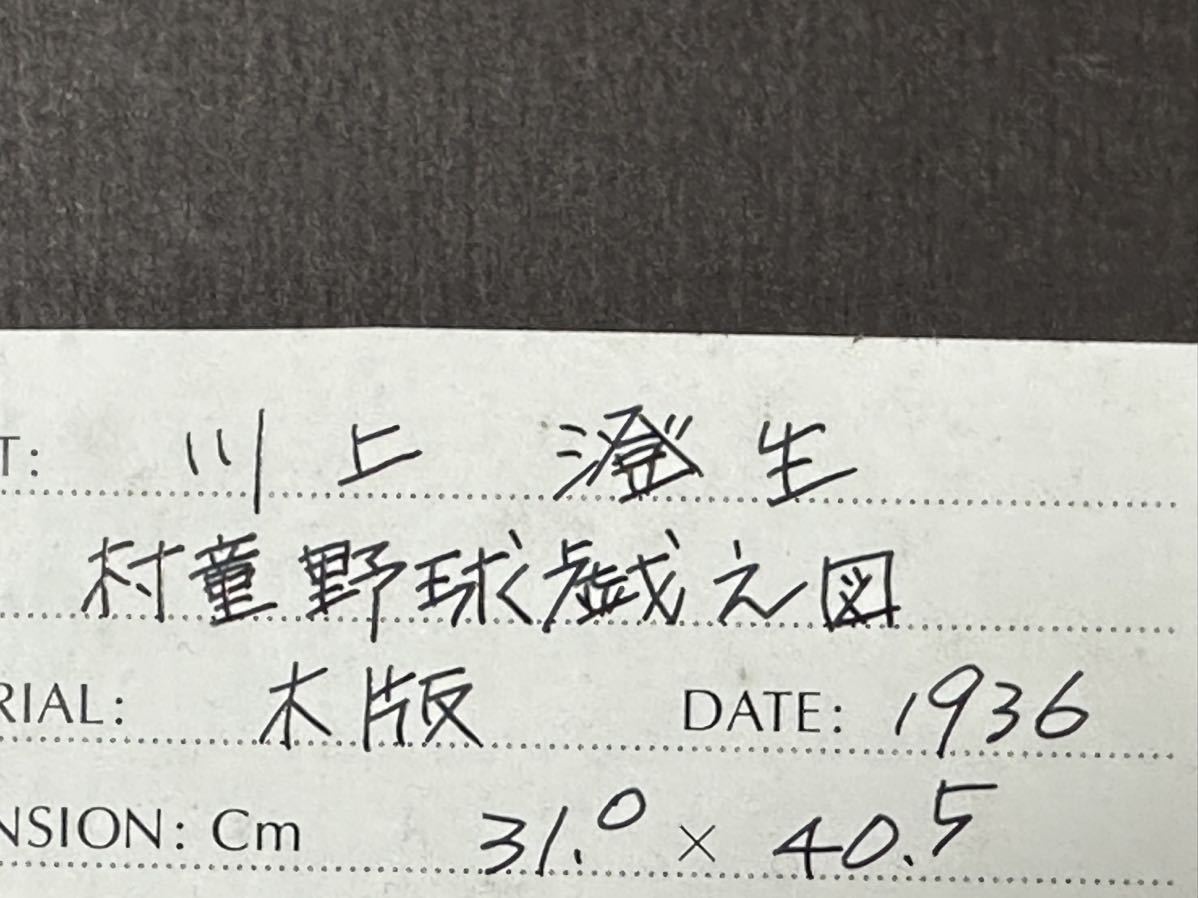 T: 川上 澄生
村童野球戯え図
RIAL: 木版 DATE: 1936
NSION: Cm 31.0 × 40.5